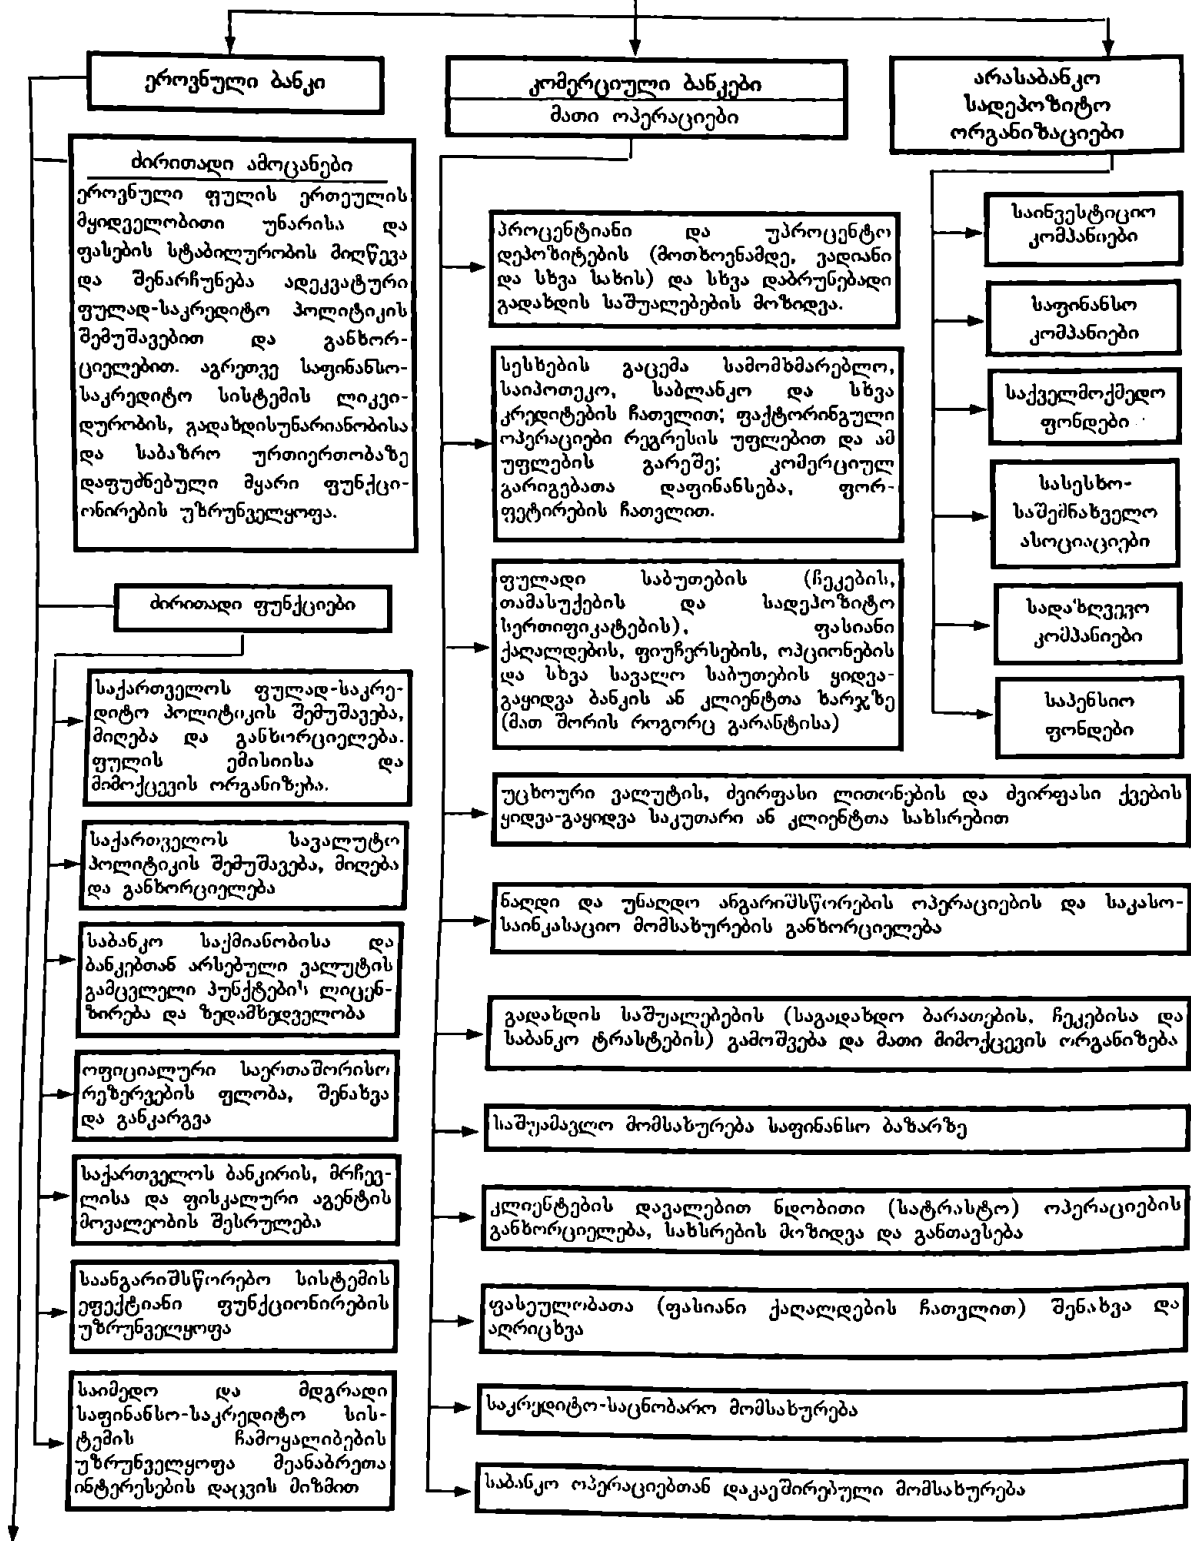 ეროვნული ბანკი
ძირითადი ამოცანები
ეროვნული ფულის ერთეულის
მყიდველობითი უნარისა და
ფასების სტაბილურობის მიღწევა
და შენარჩუნება ადეკვატური
ფულად-საკრედიტო პოლიტიკის
შემუშავებით და განხორ-
ციელებით. აგრეთვე საფინანსო-
საკრედიტო სისტემის ლიკვი-
დურობის, გადახდისუნარიანობისა
და საბაზრო ურთიერთობაზე
დაფუძნებული მყარი ფუნქცი-
ონირების უზრუნველყოფა.
ძირითადი ფუნქციები
საქართველოს ფულად-საკრე-
დიტო პოლიტიკის შემუშავება,
მიღება და განხორციელება.
ფულის ემისიისა და
მიმოქცევის ორგანიზება.
საქართველოს სავალუტო
პოლიტიკის შემუშავება, მიღება
და განხორციელება
საბანკო საქმიანობისა და
ბანკებთან არსებული ვალუტის
გამცვლელი პუნქტების ლიცენ-
ზირება და ზედამხედველობა
ოფიციალური საერთაშორისო
რეზერვების ფლობა, შენახვა
და განკარგვა
საქართველოს ბანკირის, მრჩევ-
ლისა და ფისკალური აგენტის
მოვალეობის შესრულება
საანგარიშსწორებო სისტემის
ეფექტიანი ფუნქციონირების
უზრუნველყოფა
საიმედო და მდგრადი
საფინანსო-საკრედიტო სის-
ტემის ჩამოყალიბების
უზრუნველყოფა მეანაბრეთა
ინტერესების დაცვის მიზმით
კომერციული ბანკები
მათი ოპერაციები
პროცენტიანი და უპროცენტო
დეპოზიტების (მოთხოვნამდე, ვადიანი
და სხვა სახის) და სხვა დაბრუნებადი
გადახდის საშუალებების მოზიდვა.
სესხების გაცემა სამომხმარებლო,
საიპოთეკო, საბლანკო და სხვა
კრედიტების ჩათვლით; ფაქტორინგული
ოპერაციები რეგრესის უფლებით და ამ
უფლების გარეშე; კომერციულ
გარიგებათა დაფინანსება, ფორ-
ფეტირების ჩათვლით.
ფულადი საბუთების (ჩეკების,
თამასუქების და სადეპოზიტო
სერთიფიკატების), ფასიანი
ქაღალდების, ფიუჩერსების, ოპციონების
და სხვა სავალო საბუთების ყიდვა-
გაყიდვა ბანკის ან კლიენტთა ხარჯზე
(მათ შორის როგორც გარანტისა)
უცხოური ვალუტის, ძვირფასი ლითონების და ძვირფასი ქვების
ყიდვა-გაყიდვა საკუთარი ან კლიენტთა სახსრებით
ნაღდი და უნაღდო ანგარიშსწორების ოპერაციების და საკასო-
საინკასაციო მომსახურების განხორციელება
გადახდის საშუალებების (საგადახდო ბარათების, ჩეკებისა და
საბანკო ტრასტების) გამოშვება და მათი მიმოქცევის ორგანიზება
საშუამავლო მომსახურება საფინანსო ბაზარზე
კლიენტების დავალებით ნდობითი (სატრასტო) ოპერაციების
განხორციელება, სახსრების მოზიდვა და განთავსება
ფასეულობათა (ფასიანი ქაღალდების ჩათვლით) შენახვა და
აღრიცხვა
საკრედიტო-საცნობარო მომსახურება
საბანკო ოპერაციებთან დაკავშირებული მომსახურება
არასაბანკო
სადეპოზიტო
ორგანიზაციები
საინვესტიციო
კომპანიები
საფინანსო
კომპანიები
საქველმოქმედო
ფონდები
სასესხო-
საშემნახველო
ასოციაციები
სადაზღვევო
კომპანიები
საპენსიო
ფონდები